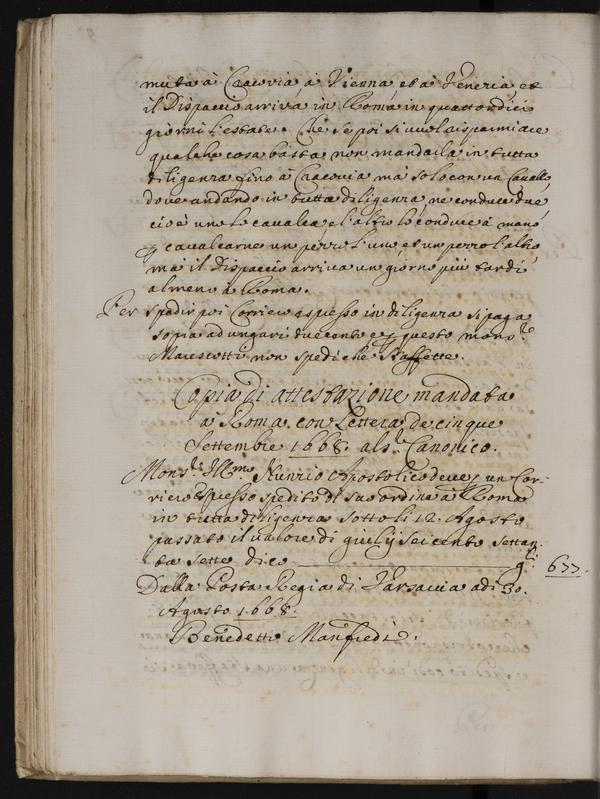 muta à Cracovia, à Vienna, et à Venezia, et
il Dispaccio arriva in Roma in quattordici
giorni l'estate. Che se poi si vuol risparmiare
qualche cosa basta non mandarla in tutta
diligenza fino à Cracovia ma solo con un Cavallo
dove andando in tutta diligenza ne conduce due
cioè uno lo cavalca e l'altro lo conduce à mano
cavalcarne un pezzo l'uno, et un pezzo l'altro
ma il Dispaccio arriva un giorno più tardi
almeno à Roma.
Per spedir poi Corriero espresso in diligenza si paga
sopra ad ungari ducento e questo mons.re
Marescotti non spedi che Staffette.
Copia di attestazione mandata
à Roma con Lettera de cinque
Settembre 1668. al s.r Canonico.
Mons.r Ill.mo Nunzio Apostolico deve un Cor-
riero espresso spedito di suo ordine à Roma
in tutta diligenza sotto li 12. Agosto
passato il valore di giulij seicento settan-
ta sette dico 677.
Dalla Posta Regia di Varsavia adi 30.
Agosto 1668.
Benedetto Manfredi.